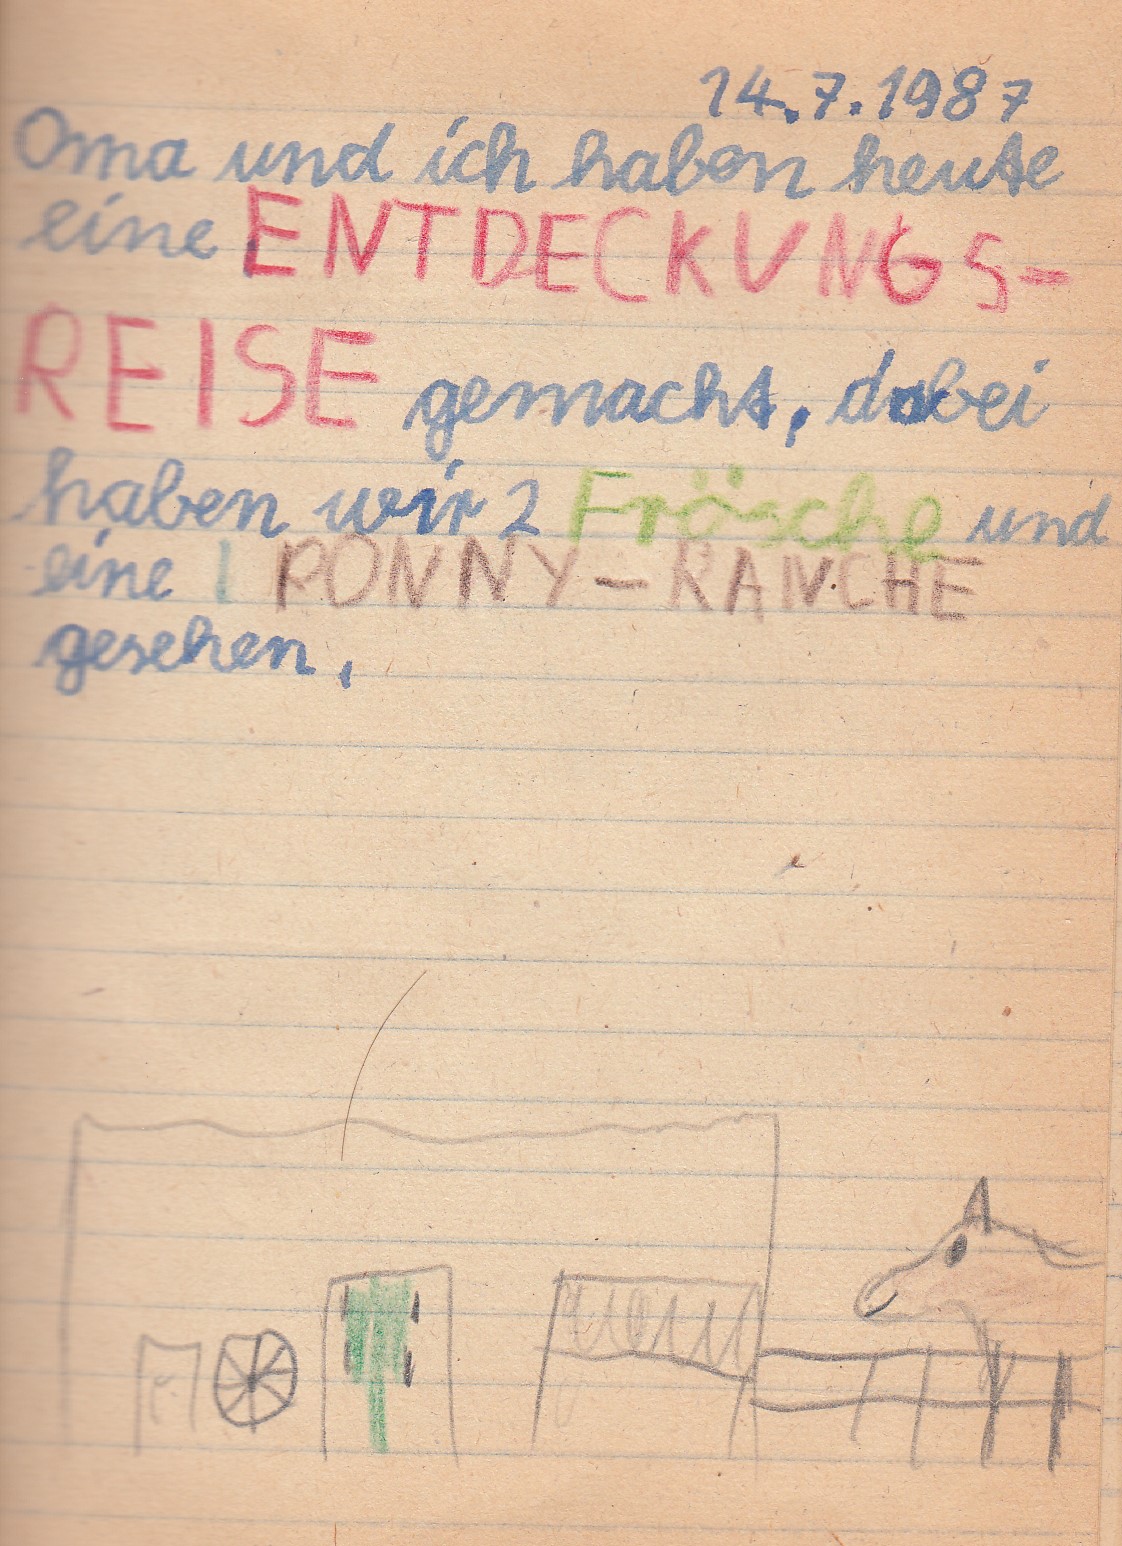 14.7.1987
Oma und ich haben heute
eine ENTDECKUNGS-
REISE gemacht, dabei
haben wir 2 Frösche und
eine 1 PONNY-RANCHE
gesehen.